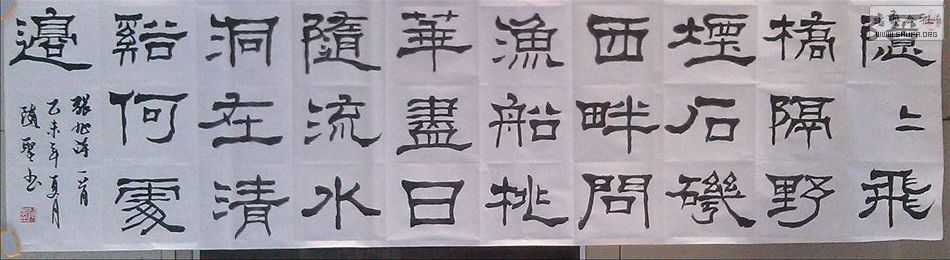 隱二飛
橋隔野
煙石磯
西畔問
漁船桃
華盡日
隨流水
洞在清
谿何處
邊
張旭詩一首
乙未年夏月
WWW.SHUFA.ORG